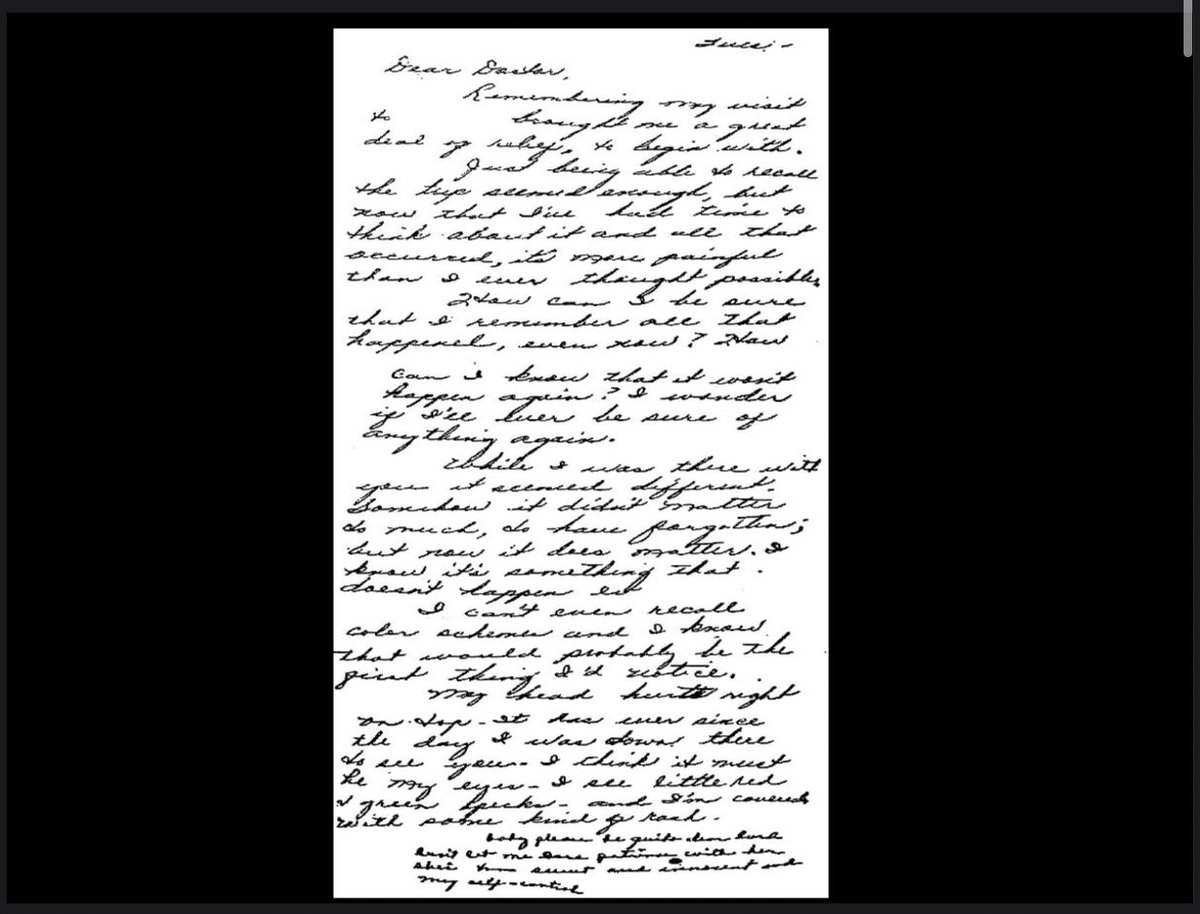 Tues. -
Dear Doctor,
Remembering my visit
to brought me a great
deal of relief, to begin with.
Just being able to recall
the trip seemed enough, but
now that I've had time to
think about it and all that
occurred, it's more painful
than I ever thought possible.
How can I be sure
that I remember all that
happened, even now? How
can I know that it won't
happen again? I wonder
if I'll ever be sure of
anything again.
While I was there with
you it seemed different.
Somehow it didn't matter
so much, to have forgotten;
but now it does matter. I
know it's something that
doesn't happen
I can't even recall
color schemes and I know
that would probably be the
first thing I'd notice.
My head hurts right
on top - It has ever since
the day I was down there
to see you - I think it must
be my eyes - I see little red
& green specks - and I'm covered
with some kind of rash.
baby please be quite dear lord
don't let me lose patience with her
she's too sweet and innocent and
my self-control